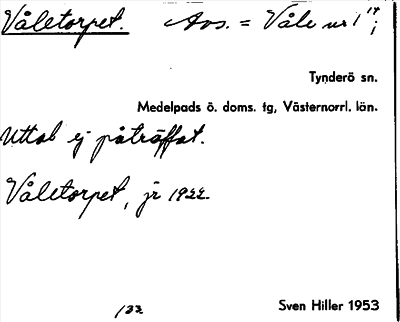 Våletorpet. Avs. = Våle nr 1 14;
Tynderö sn.
Medelpads ö. doms. tg, Västernorrl. län.
Uttal ej påträffat.
Våletorpet, jr 1922
132
Sven Hiller 1953